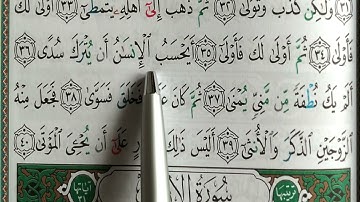 وَلَٰكِن كَذَّبَ وَتَوَلَّىٰ ٣٢ ثُمَّ ذَهَبَ إِلَىٰٓ أَهْلِهِۦ يَتَمَطَّىٰٓ ٣٣ أَوْلَىٰ لَكَ
فَأَوْلَىٰ ٣٤ ثُمَّ أَوْلَىٰ لَكَ فَأَوْلَىٰٓ ٣٥ أَيَحْسَبُ ٱلْإِنسَٰنُ أَن يُتْرَكَ سُدًى ٣٦
أَلَمْ يَكُ نُطْفَةً مِّن مَّنِىٍّ يُمْنَىٰ ٣٧ ثُمَّ كَانَ فَخَلَقَ فَسَوَّىٰ ٣٨ فَجَعَلَ مِنْهُ
ٱلزَّوْجَيْنِ ٱلذَّكَرَ وَٱلْأُنثَىٰٓ ٣٩ أَلَيْسَ ذَٰلِكَ عَلَىٰٓ أَن يُحْـِۧىَ ٱلْمَوْتَىٰ ٤٠
سُورَةُ